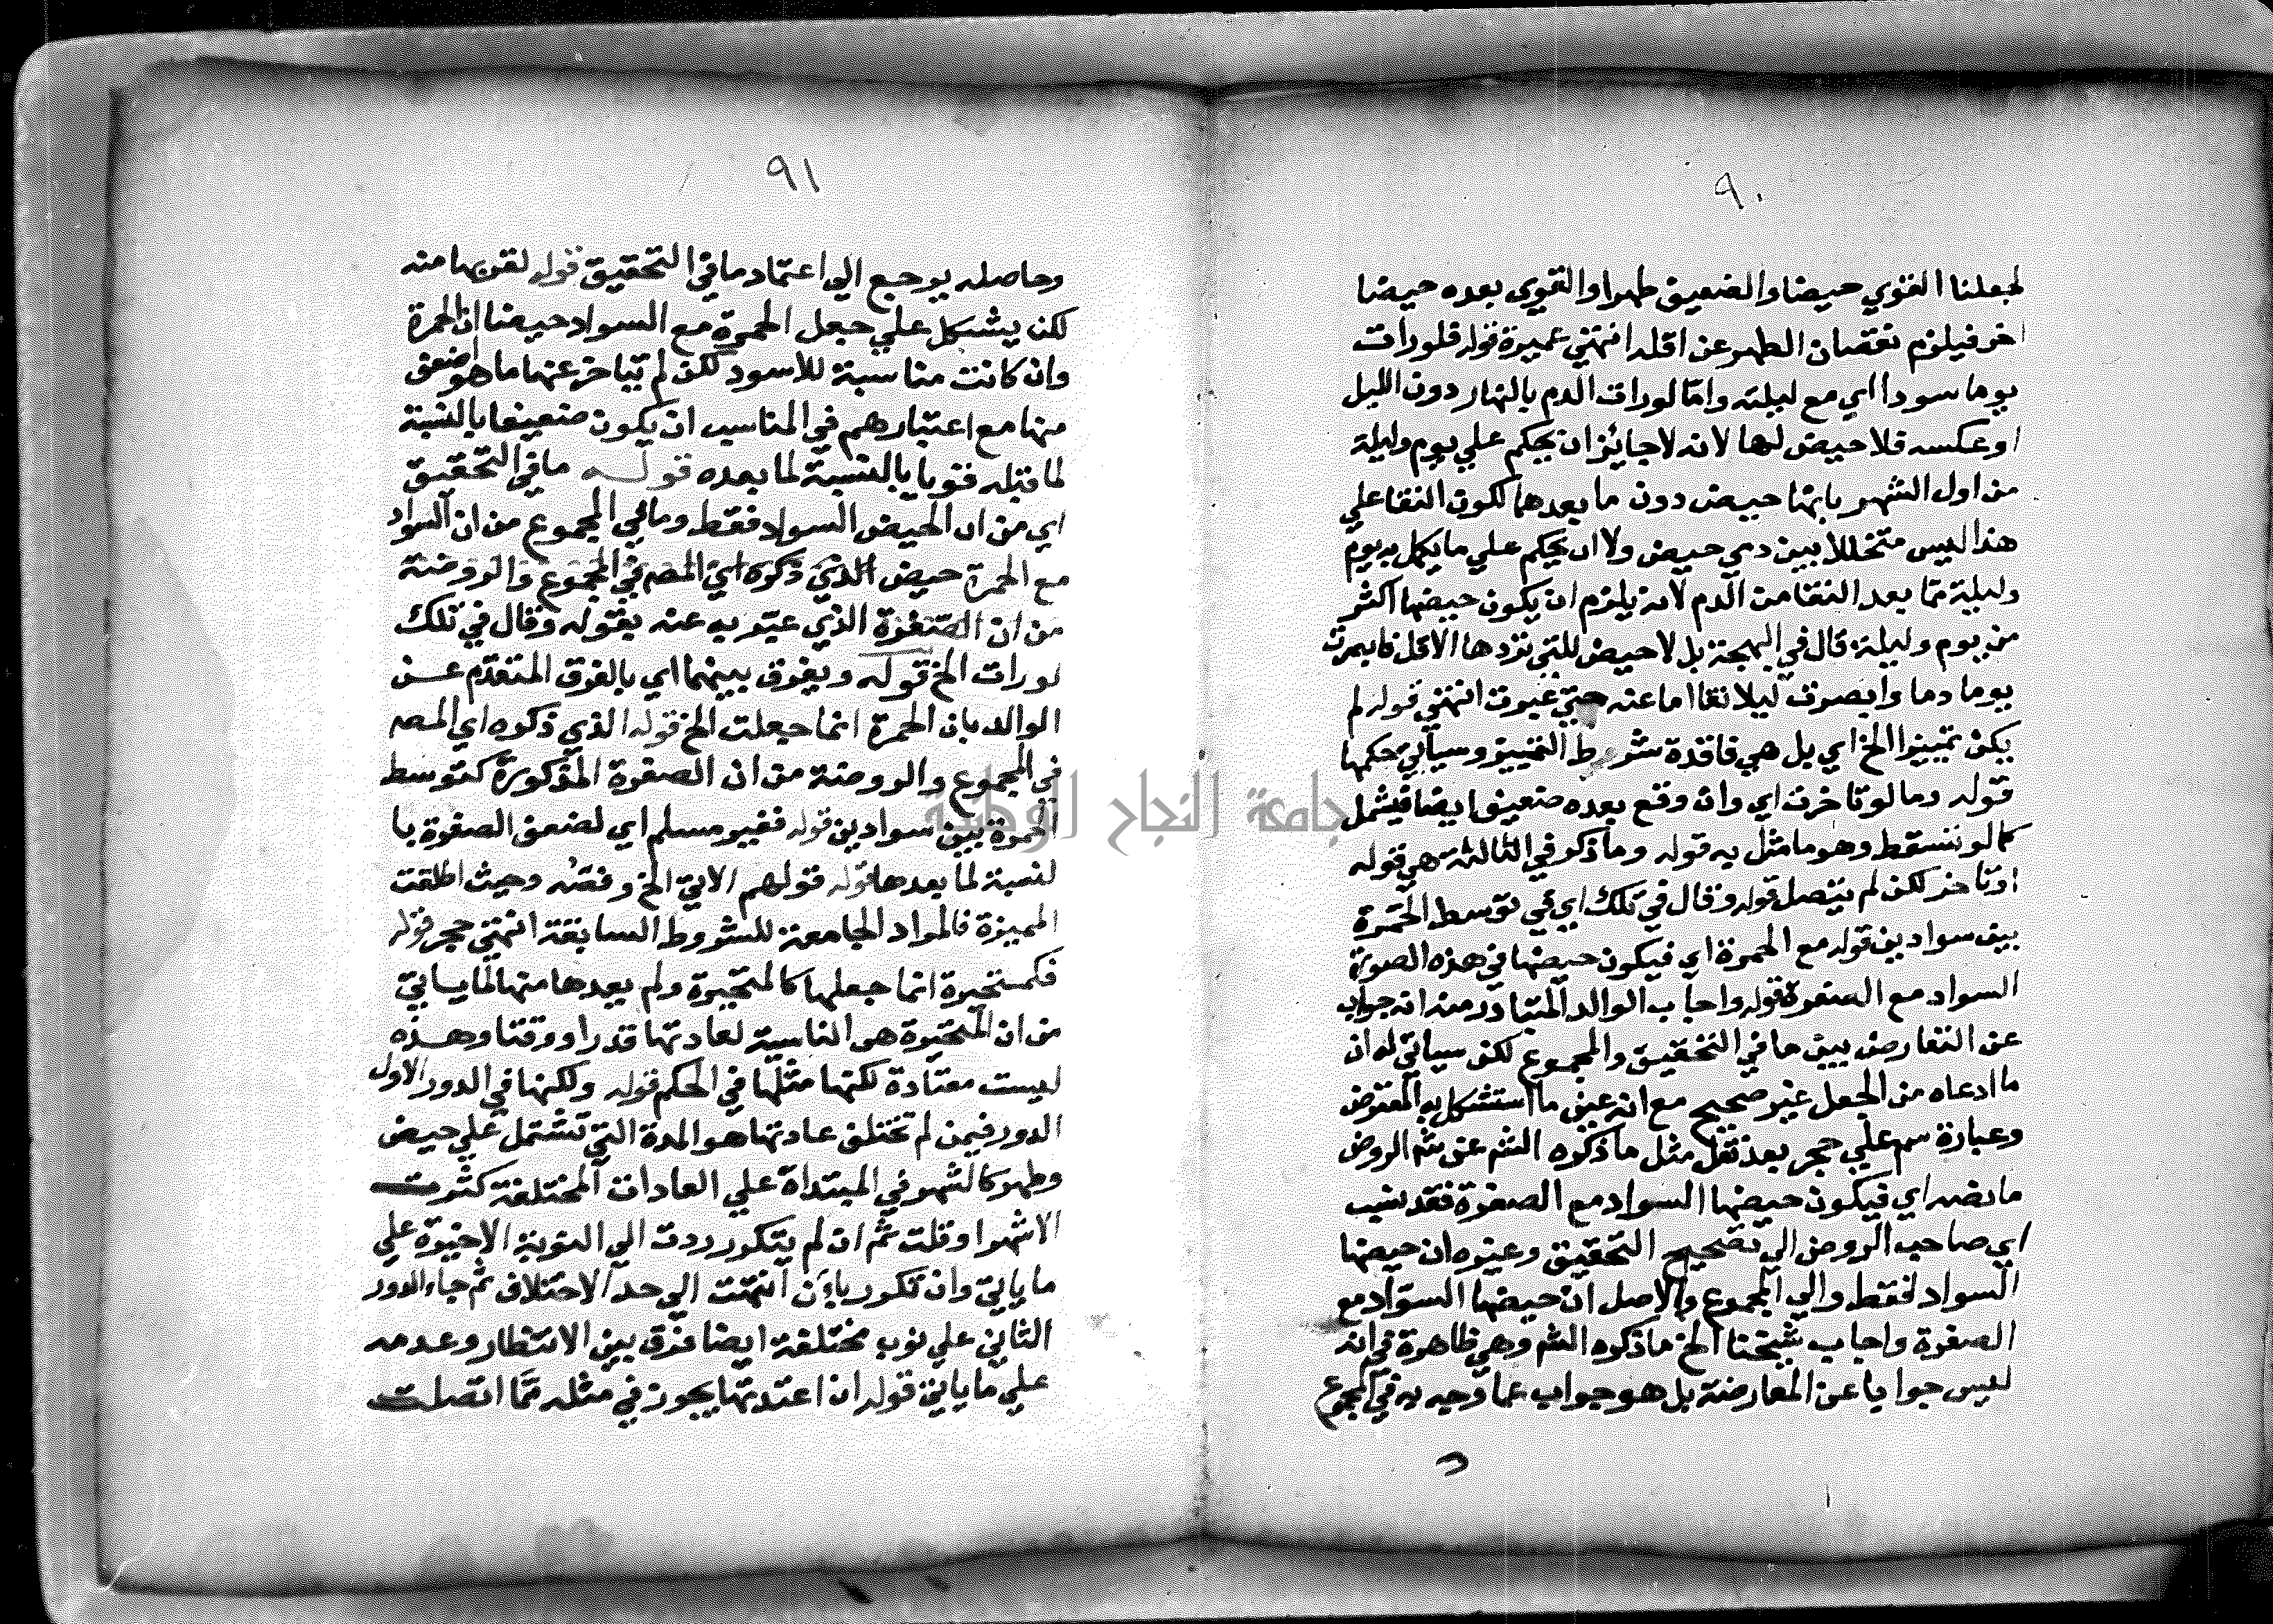 ٩٠
لجعلنا القوي حيضا والضعيف طهرا والقوي بعده حيضا
اخر فيلزم نقصان الطهر عن اقله انتهي عميرة قوله فلو رات
يوما سودا اي مع ليلته واما لورات الدم بالنهار دون الليل
او عكسه فلا حيض لها لانه لا جايز ان يحكم علي يوم وليلة
من اول الشهر بانها حيض دون ما بعدها لكون النقا علي
هذا ليس متخللا بين دمي حيض ولا ان يحكم علي ما يكمل به يوم
وليلة مما بعد النقا من الدم لانه يلزم ان يكون حيضها اكثر
من يوم وليلة قال في البهجة بل لا حيض للتي نزدها الاقل
يوما دما وابصرت ليلا نقا اما عنه حتي عبرت انتهي قوله لم
يكن تمييزا الخ اي بل هي فاقدة شروط التمييز وسياتي حكمها
قوله دما لو تاخرت اي وان وقع بعده ضعيف ايضا فيشمل
كما لو تسقط وهو ما مثل به قوله وما ذكر في الثالثة هي قوله
او تاخر لكن لم يتصل قوله وقال في تلك اي في توسط الحمرة
بين سوادين قوله مع الحمرة اي فيكون حيضها في هذه الصورة
السواد مع الصفرة قوله واجاب الوالد المتبادر منه انه جواب
عن التعارض بين ما في التحقيق والمجموع لكن سياتي له ان
ما ادعاه من الجعل غير صحيح مع انه عين ما استشكل به المعترض
وعبارة سم علي حجر بعد نقل مثل ما ذكره الشم عن شم الروض
ما نصه اي فيكون حيضها السواد مع الصفرة فقد نسب
اي صاحب الروض الي تصحيح التحقيق وغيره ان حيضها
السواد فقط والي المجموع والاصل ان حيضها السواد مع
الصفرة واجاب شيخنا الخ ما ذكره الشم وهي ظاهرة في انه
ليس جوابا عن المعارضة بل هو جواب عما وجه به في المجموع
٩١
وحاصله يرجع الي اعتماد ما في التحقيق قوله لقربها منه
لكن يشكل علي جعل الحمرة مع السواد حيضا ان الحمرة
وان كانت مناسبة للاسود لكن لم يتاخر عنها ما هو اضعف
منها مع اعتبارهم في المناسب ان يكون ضعيفا بالنسبة
لما قبله قويا بالنسبة لما بعده قوله ما في التحقيق
اي من ان الحيض السواد فقط وما في المجموع من ان السواد
مع الحمرة حيض الذي ذكره اي المصم في المجموع والروضة
من ان الصفرة الذي عبر به عنه بقوله وقال في تلك
لورات الخ قوله ويفرق بينهما اي بالفرق المتقدم عن
الوالد بان الحمرة انما جعلت الخ قوله الذي ذكره اي المصم
في المجموع والروضة من ان الصفرة المذكورة كتوسط
الحمرة بين سوادين قوله فغير مسلم اي لضعف الصفرة با
لنسبة لما بعدها قوله قولهم الاتي الخ وفضه وحيث اطلقت
المميزة فالمراد الجامعة للشروط السابقة انتهي حجر قوله
فكمتحيرة انما جعلها كالمتحيرة ولم يعدها منها لما ياتي
من ان المتحيرة هي الناسية لعادتها قدرا ووقتا وهذه
ليست معتادة لكنها مثلها في الحكم قوله ولكنها في الدور الاول
الدور فيمن لم تختلف عادتها هو المدة التي تشتمل علي حيض
وطهر كالشهر في المبتداة علي العادات المختلفة كثرت
الاشهر او قلت ثم ان لم يتكرر ردت الي النوبة الاخيرة علي
ما ياتي وان تكرر بان انتهت الي حد الاختلاف ثم جاء الدور
الثاني علي نوب مختلفة ايضا فرق بين الانتظار وعدمه
علي ما ياتي قوله ان اعتدتها يجوز في مثله مما اتصلت
جامعة النجاح الوطنية